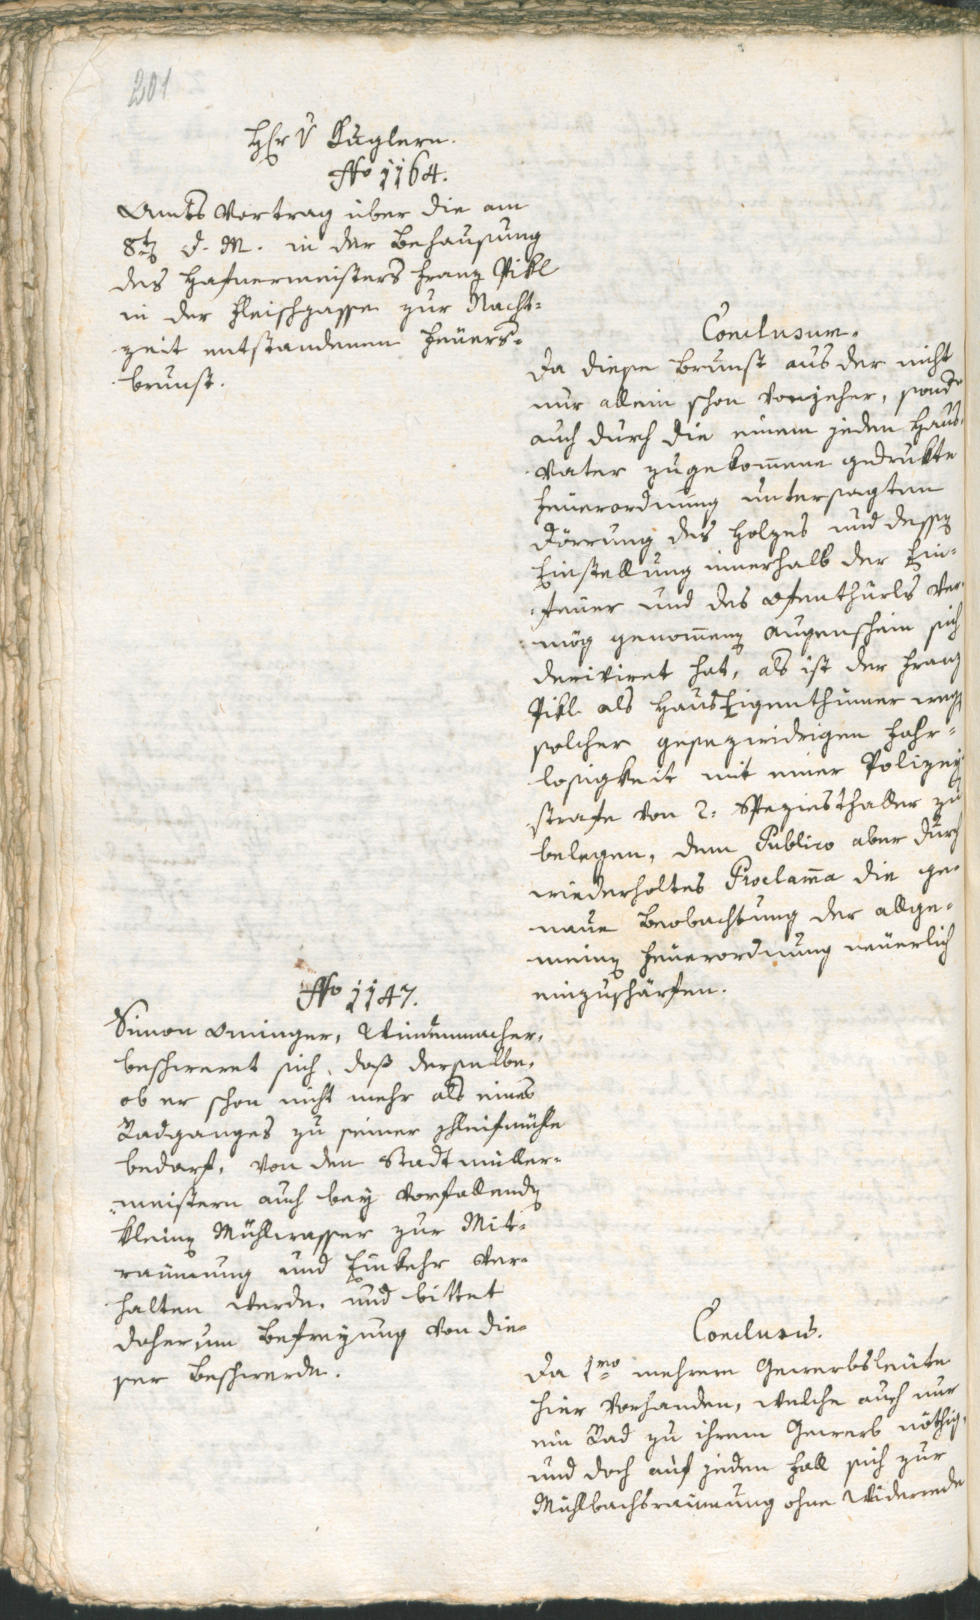 201
Hr v Kuglern.
No 1164.
Amts Vortrag über die am
8t d. M. in der Behausung
des Hafnermeisters Franz Pikl
in der Fleischgasse zur Nacht-
zeit entstandenen Feuers-
brunst.
Conclusum.
Da diese Brunst aus der nicht
nur allein schon vorjeher, sond
auch durch die einem jeden Haus-
vater zugekom̄ene gedrukte
Feuerordnung untersagten
Dörrung des Holzes und dessen
Einstellung innerhalb der Ein-
feuer und des Ofenthürls ver-
mög genom̄enen Augenschein sich
deriviret hat, als ist der Franz
Pikl als HausEigenthümer wegen
solcher gesezwidrigen Fahr-
losigkeit mit einer Polizey
strafe von 2: Speziesthaller zu
belegen, dem Publico aber durch
wiederholtes Proclam̄a die ge-
naue Beobachtung der allge-
meinen Feuerordnung neuerlich
einzuschärfen.
No 1147.
Simon Aninger, Windenmacher,
beschweret sich, daß derselbe,
ob er schon nicht mehr als eines
Radganges zu seiner Schleifmühle
bedarf, von den Stadtmüller-
meistern auch bey vorfallenden
kleinen Mühlwasser zur Mit-
raumung und Einkehr ver-
halten werde, und bittet
daher um Befreyung von die-
ser Beschwerde.
Conclusum.
Da 1mo mehrere Gewerbsleute
hier vorhanden, welche auch nur
ein Rad zu ihrem Gewerb nöthig,
und doch auf jeden Fall sich zur
Mühlbachsraumung ohne Widerrede